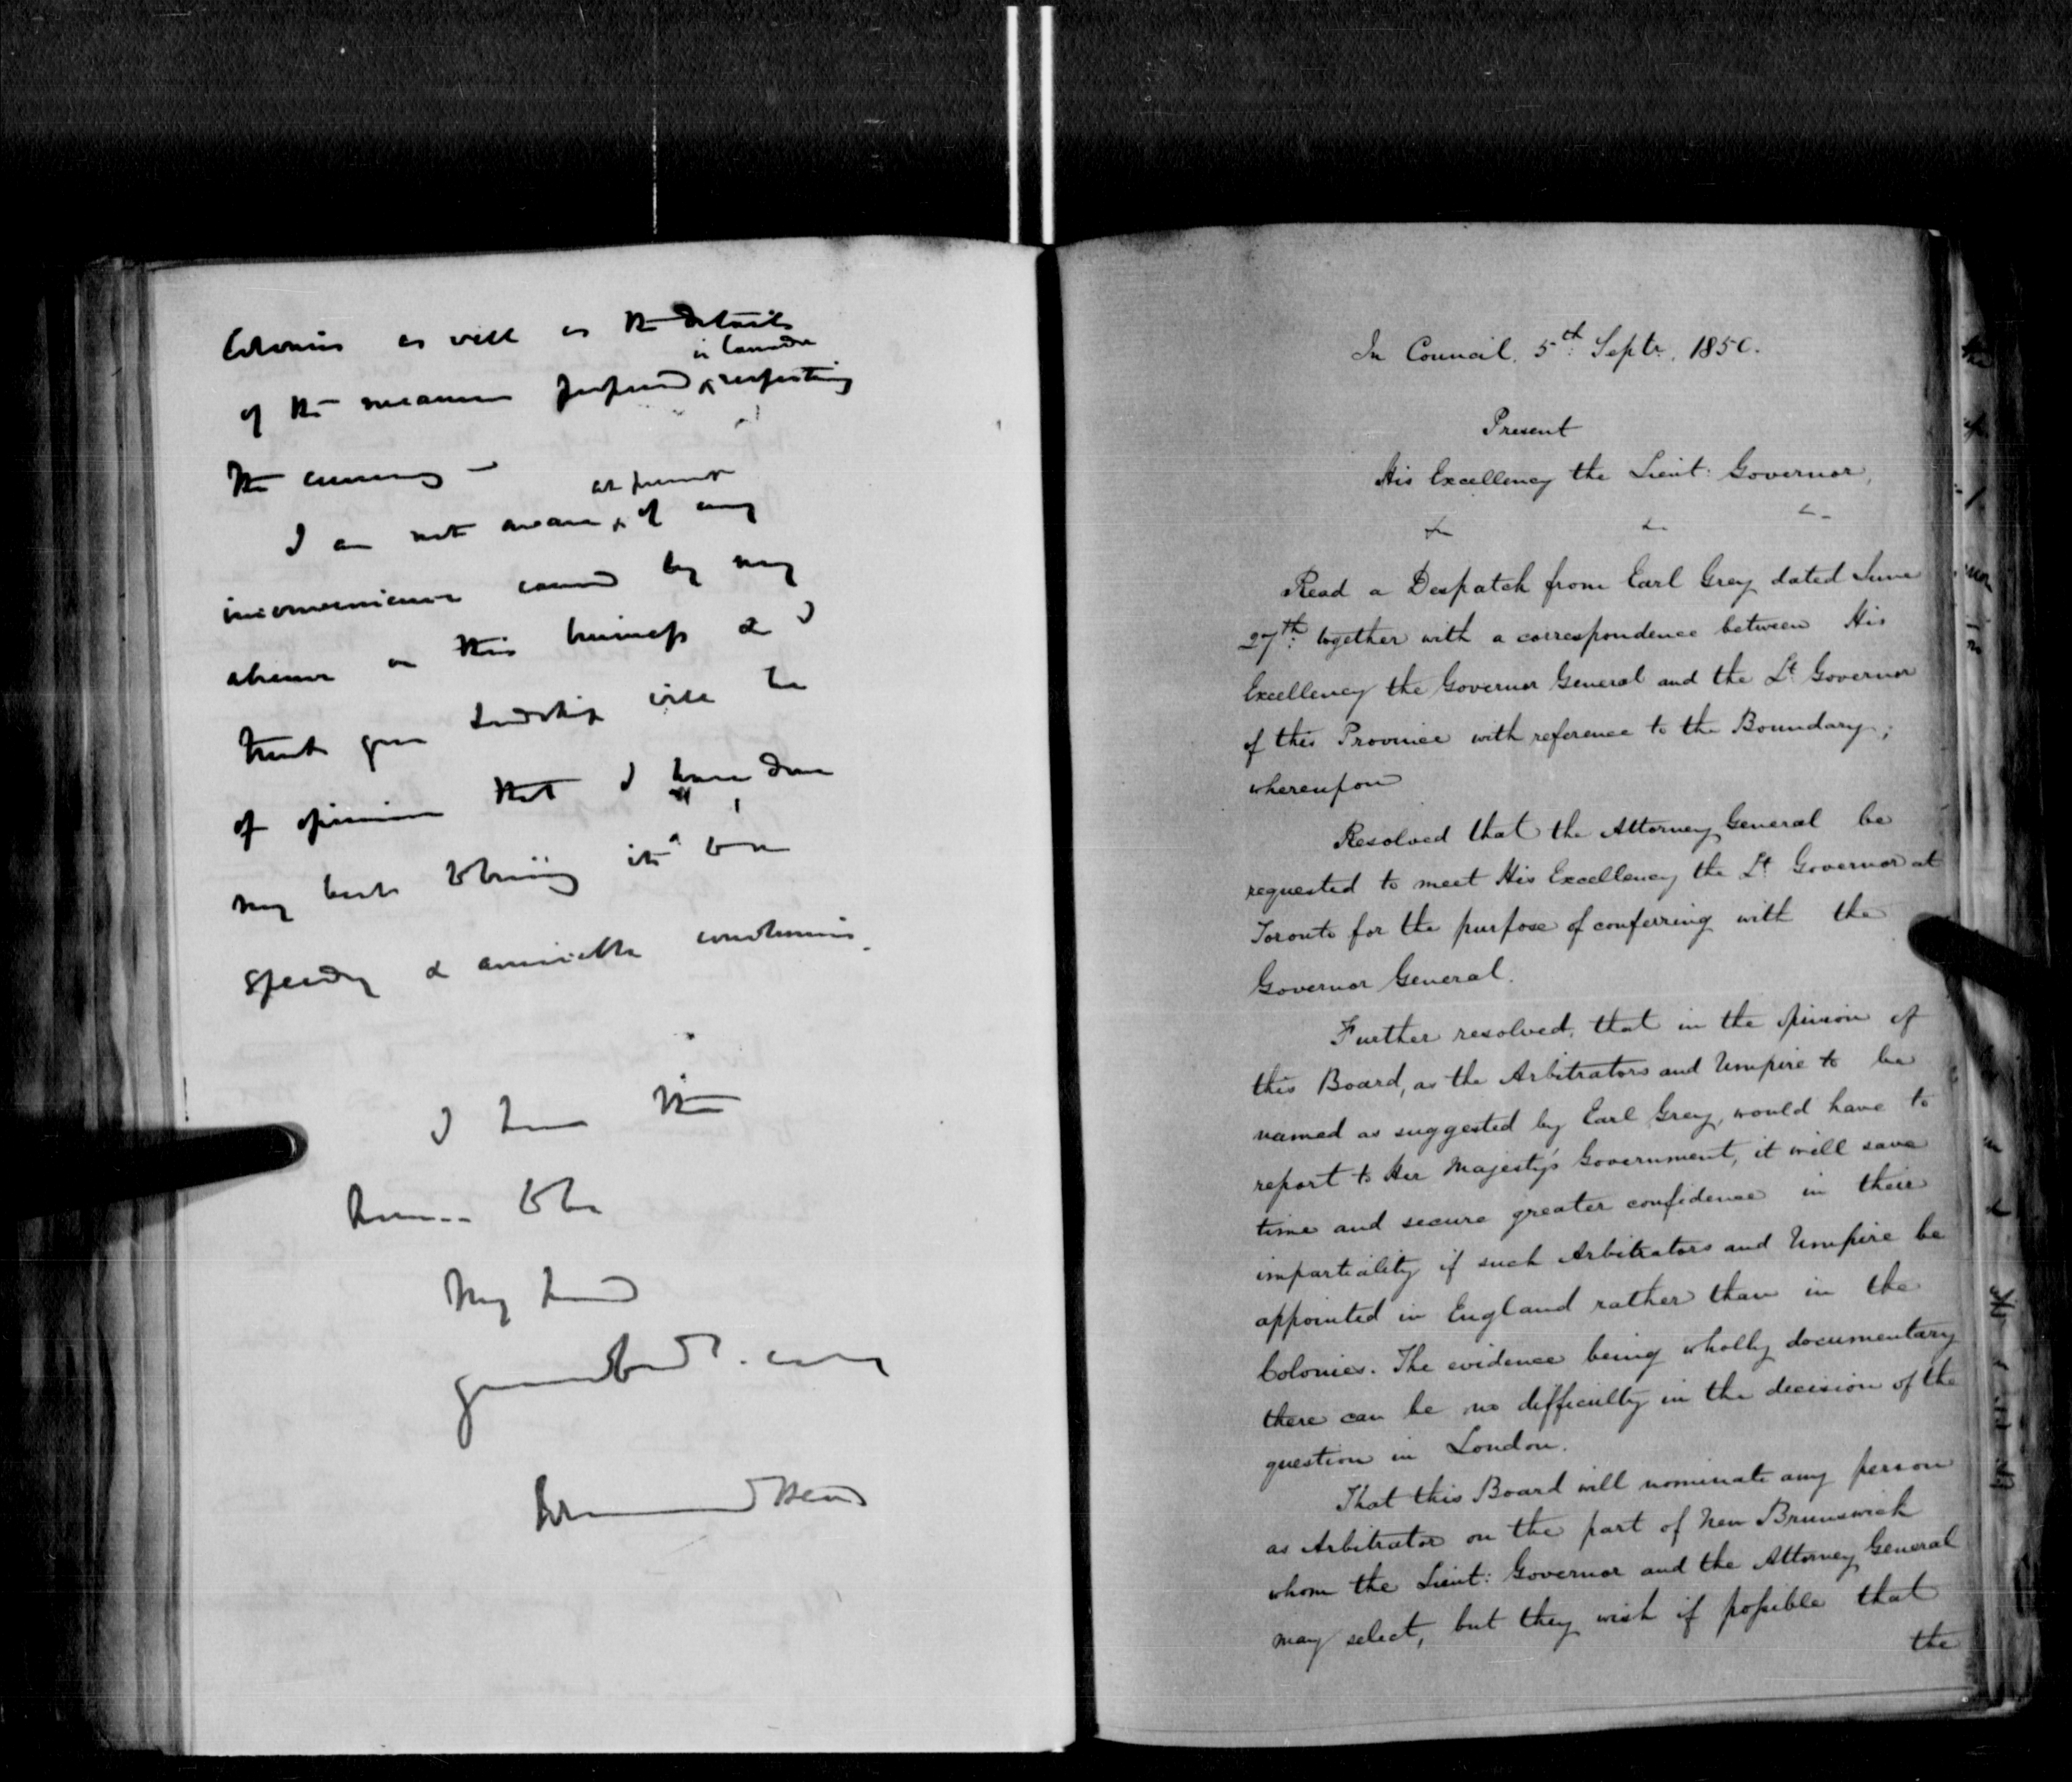 Colonies as well as the details
in Canada
of the measures proposed ^ respecting
the currency –
at present
I am not aware ^ of any
inconvenience caused by my
absence on this business & I
trust your Lordship will be
of opinion that I have done
my best to bring it to a
speedy & amicable conclusion.
I have the
honor to be
My Lord
Your
Edmund Head
In Council, 5th: Septr. 1850.
Present
His Excellency the Lieut: Governor,
Read a Despatch from Earl Grey dated June
27th: together with a correspondence between His
Excellency the Governor General and the Lt Governor
of this Province with reference to the Boundary;
whereupon
Resolved that the Attorney General be
requested to meet His Excellency the Lt Governor at
Toronto for the purpose of conferring with the
Governor General.
Further resolved, that in the opinion of
this Board, as the Arbitrators and Umpire to be
named as suggested by Earl Grey, would have to
report to Her Majesty's Government, it will save
time and secure greater confidence in their
impartiality if such Arbitrators and Umpire be
appointed in England rather than in the
Colonies. The evidence being wholly documentary
there can be no difficulty in the decision of the
question in London.
That this Board will nominate any person
as Arbitrator on the part of New Brunswick
whom the Lieut: Governor and the Attorney General
may select, but they wish if possible that
the